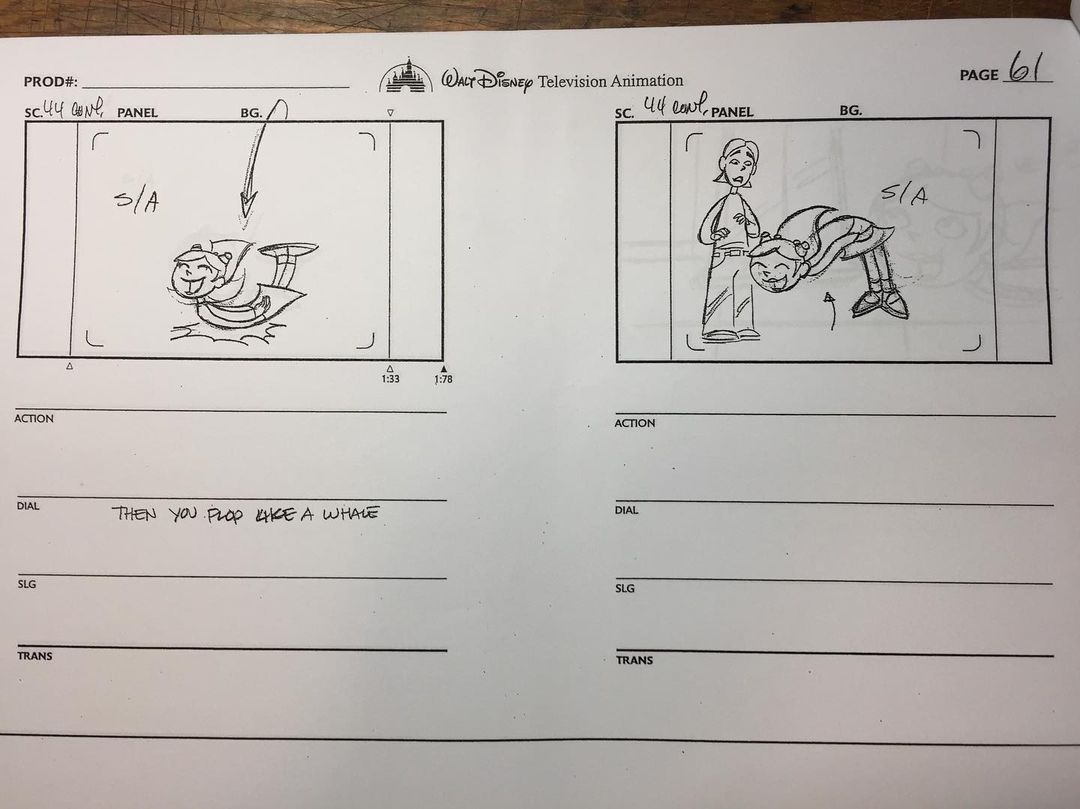 PROD#:
WALT DISNEY Television Animation
PAGE 61
SC. 44 cont. PANEL BG.
S/A
1:33 1:78
ACTION
DIAL THEN YOU FLOP LIKE A WHALE
SLG
TRANS
SC. 44 cont. PANEL BG.
S/A
ACTION
DIAL
SLG
TRANS